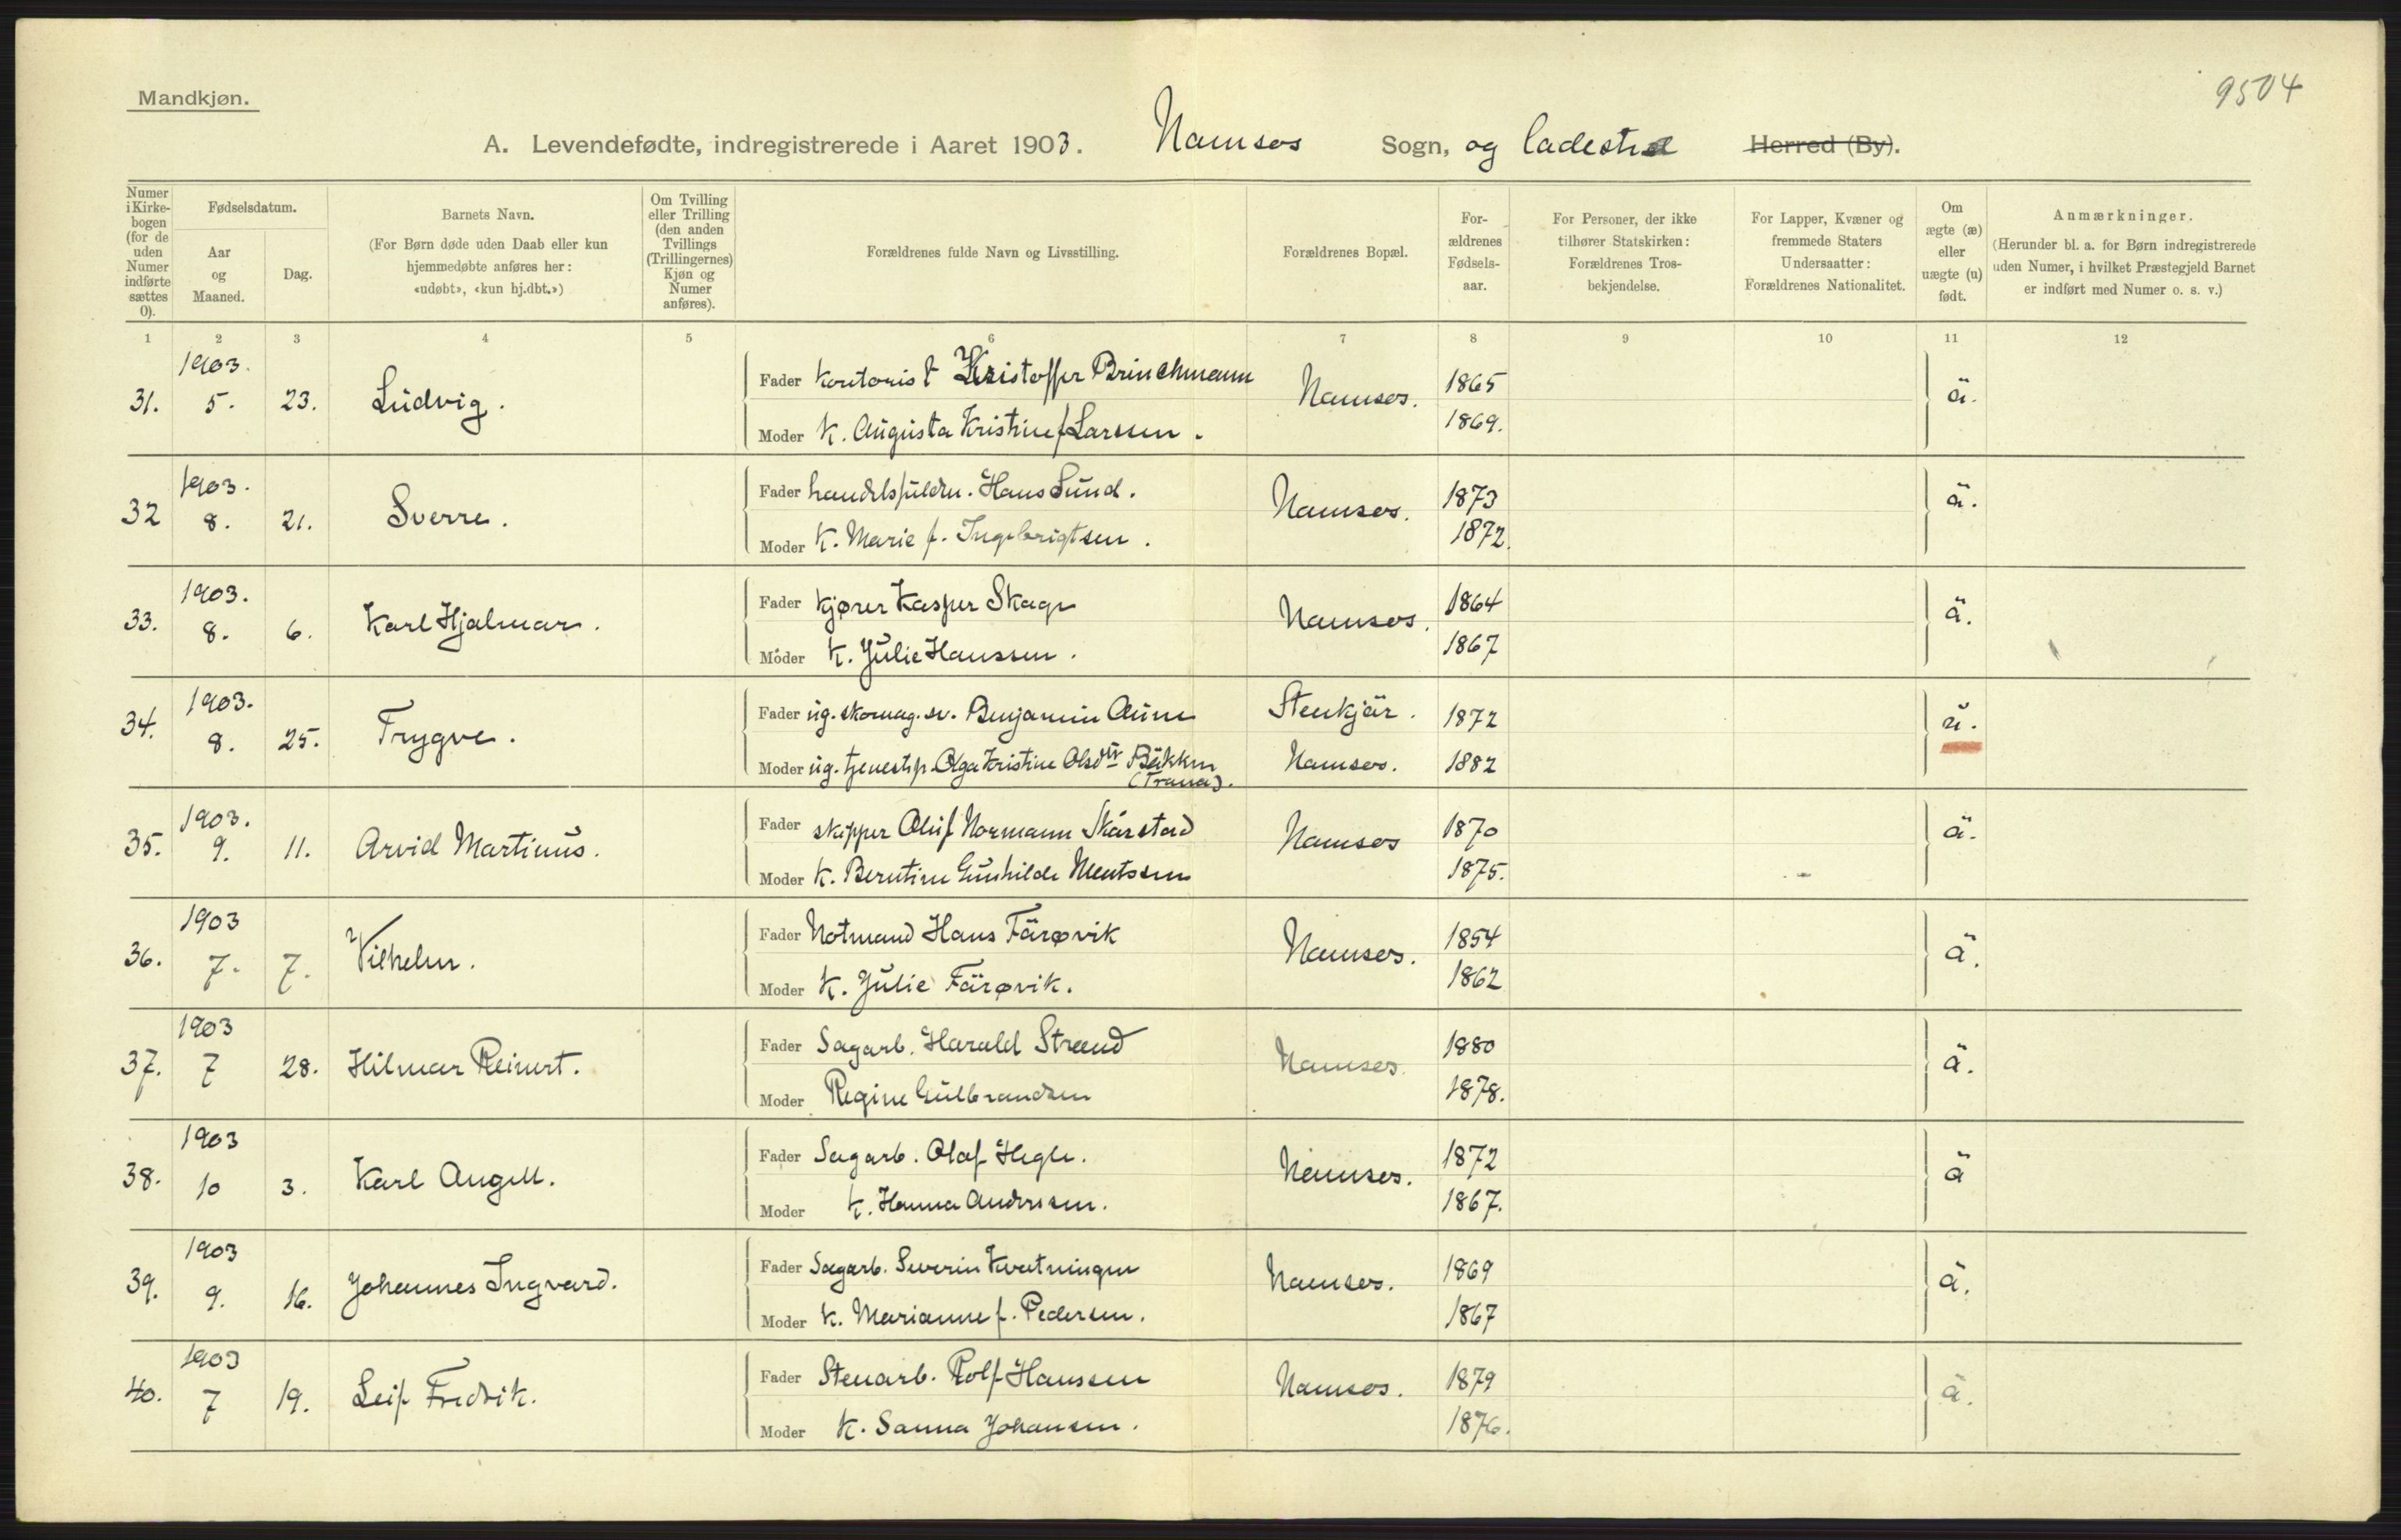 9504
Mandkjøn.
A. Levendefødte, indregistrerede i Aaret 1903. Namsos Sogn, og ladested Herred (By).
Numer i Kirkebogen (for de uden Numer indførte sættes 0).
Fødselsdatum.
Aar og Maaned.
Dag.
Barnets Navn.
(For Børn døde uden Daab eller kun hjemmedøbte anføres her: «udøbt», «kun hj.dbt.»)
Om Tvilling eller Trilling (den anden Tvillings (Trillingernes) Kjøn og Numer anføres).
Forældrenes fulde Navn og Livsstilling.
Forældrenes Bopæl.
For-ældrenes Fødsels-aar.
For Personer, der ikke tilhører Statskirken: Forældrenes Tros-bekjendelse.
For Lapper, Kvæner og fremmede Staters Undersaatter: Forældrenes Nationalitet.
Om ægte (æ) eller uægte (u) født.
Anmærkninger.
(Herunder bl. a. for Børn indregistrerede uden Numer, i hvilket Præstegjeld Barnet er indført med Numer o. s. v.)
1 2 3 4 5 6 7 8 9 10 11 12
31. 1903. 5. 23. Ludvig. Fader kontorist Kristoffer Brinchmann Namsos. 1865 ä.
Moder k. Augusta Kristine f. Larssen. 1869.
32 1903. 8. 21. Sverre. Fader handelsfuldm. Hans Lund. Namsos. 1873 ä.
Moder k. Marie f. Ingebrigtsen. 1872.
33. 1903. 8. 6. Karl Hjalmar. Fader kjører Kasper Skage Namsos. 1864 ä.
Moder k. Julie Hanssen. 1867
34. 1903. 8. 25. Trygve. Fader ug. skomag. sv. Benjamin Aune Stenkjär. 1872 u.
Moder ug. tjenestep. Olga Kristine Olsdtr Bäkken Namsos. 1882
(Trana).
35. 1903. 9. 11. Arvid Martinus. Fader skipper Oluf Normann Skarstad Namsos 1870 ä.
Moder k. Berntine Gunhilde Mentssen 1875.
36. 1903 7. 7. Vilhelm. Fader Notmand Hans Färøvik Namsos. 1854 ä.
Moder k. Julie Färøvik. 1862
37. 1903 7 28. Hilmar Reinert. Fader Sagarb. Harald Strand Namsos. 1880 ä.
Moder Regine Gulbrandsen 1878.
38. 1903 10 3. Karl Angell. Fader Sagarb. Olaf Hegle. Namsos. 1872 ä
Moder k. Hanna Anderssen. 1867.
39. 1903 9. 16. Johannes Ingvard. Fader Sagarb. Severin Kvatningen Namsos. 1869 ä.
Moder k. Marianne f. Pedersen. 1867
40. 1903 7 19. Leif Fredrik. Fader Stenarb. Rolf Hanssen Namsos. 1879 ä.
Moder k. Sanna Johansen. 1876.